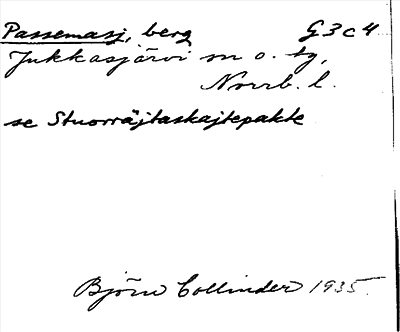 Passemasj, berg G3c4
Jukkasjärvi sn o. tg,
Norrb. l.
se Stuorräjtaskajtepakte
Björn Collinder 1935.